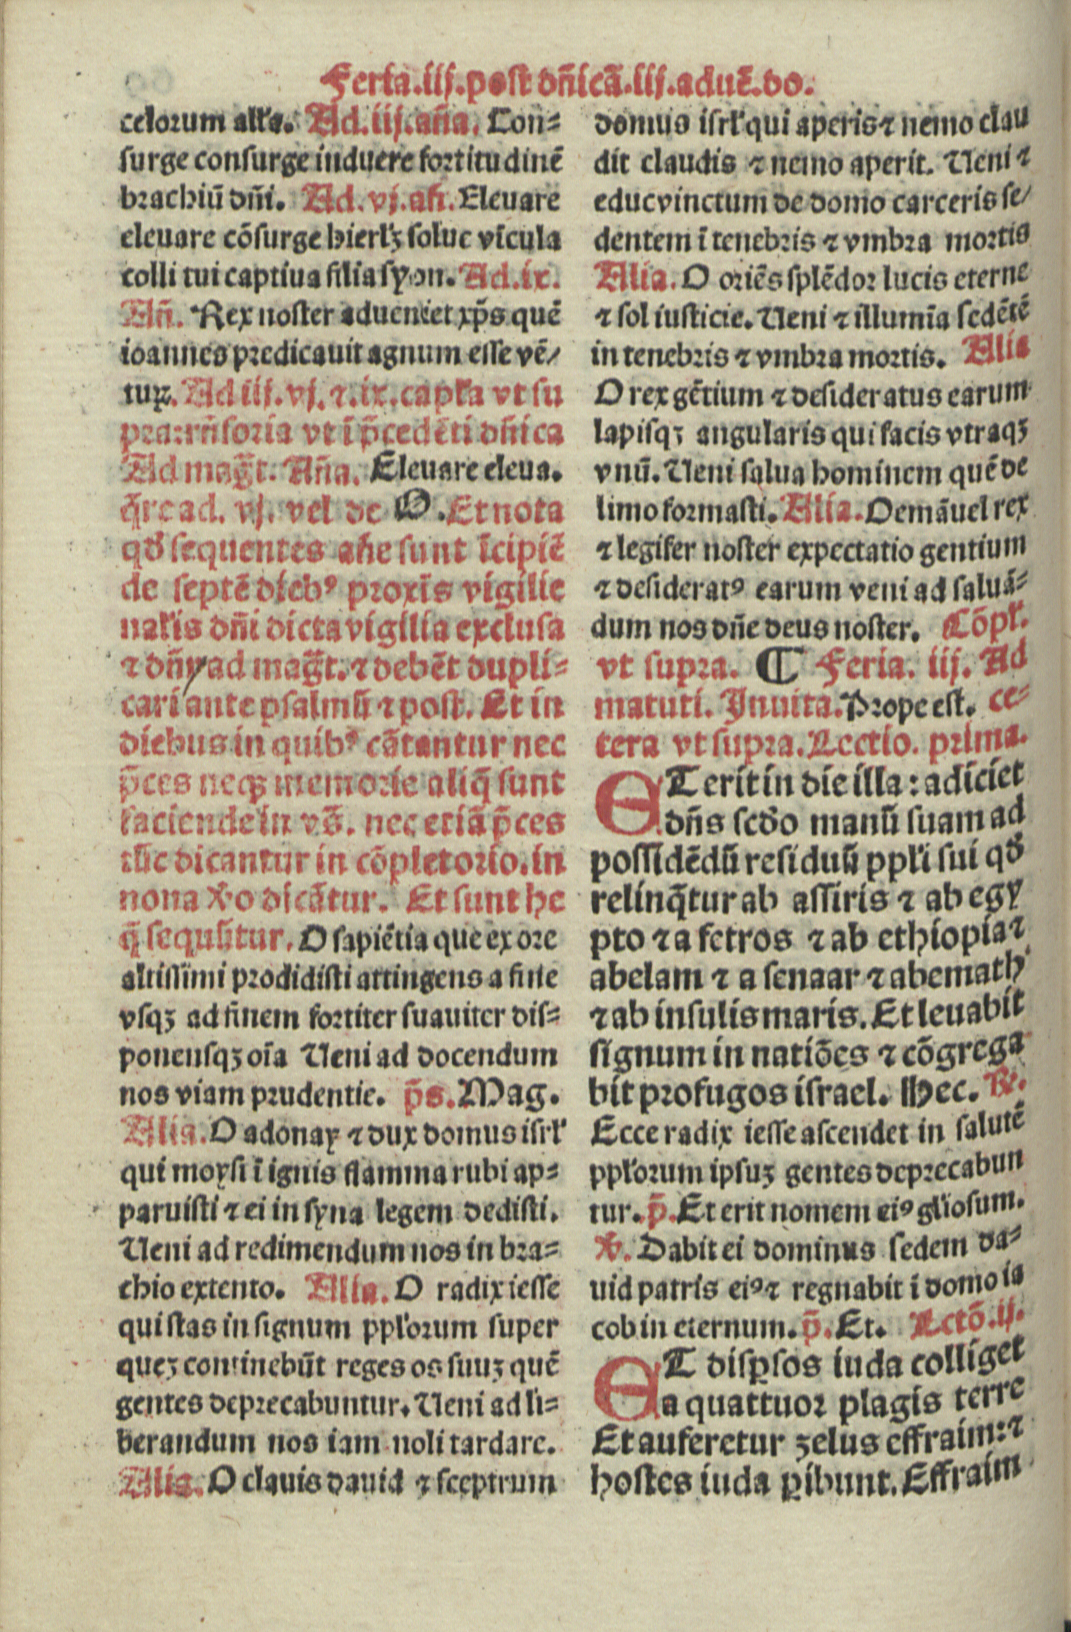 Feria.iij.post dñicã.iij.aduẽ.do.
celorum alľa. Ad.iij.aña. Con-
surge consurge induere fortitudinẽ
brachiũ dñi. Ad.vj.añ. Eleuare
eleuare cõsurge hierlꝫ solue vĩcula
colli tui captiua filia syon. Ad.ix.
Añ. Rex noster adueniet xp̃s quẽ
ioannes predicauit agnum esse vẽ/
turꝝ. Ad iij.vj.⁊.ix.capľa vt su
pra:rñsoria vt ĩ p̃cedẽti dñica
Ad mag̃t. Aña. Eleuare eleua.
q̃re ad. vj. vel de O. Et nota
qď sequentes añe sunt ĩcipiẽ
de septẽ diebꝰ proxĩs vigilie
nalis dñi dicta vigilia exclusa
⁊ dñy ad mag̃t. ⁊ debẽt dupli-
cari ante psalmũ ⁊ post. Et in
diebus in quibꝰ cãtantur nec
p̃ces neqꝫ memorie aliq̃ sunt
faciende in vs̃. nec etiã p̃ces
tũc dicantur in cõpletorio. in
nona ꟟o dicãtur. Et sunt he
q̃ sequũtur. O sapiẽtia que ex ore
altissimi prodidisti attingens a fine
vsqꝫ ad finem fortiter suauiter dis-
ponensqꝫ oĩa Ueni ad docendum
nos viam prudentie. p̃s. Mag.
Alia. O adonay ⁊ dux domus isrľ
qui moysi ĩ ignis flamma rubi ap-
paruisti ⁊ ei in syna legem dedisti.
Ueni ad redimendum nos in bra-
chio extento. Alia. O radix iesse
qui stas in signum ppľorum super
queꝫ continebũt reges os suuꝫ quẽ
gentes deprecabuntur. Ueni ad li-
berandum nos iam noli tardare.
Alia. O clauis dauid ⁊ sceptrum
domus isrľ qui aperis ⁊ nemo clau
dit claudis ⁊ nemo aperit. Ueni ⁊
educ vinctum de domo carceris se/
dentem ĩ tenebris ⁊ vmbra mortis
Alia. O oriẽs splẽdor lucis eterne
⁊ sol iusticie. Ueni ⁊ illumĩa sedẽtẽ
in tenebris ⁊ vmbra mortis. Alia
O rex gẽtium ⁊ desideratus earum
lapisqꝫ angularis qui facis vtraqꝫ
vnũ. Ueni salua hominem quẽ de
limo formasti. Alia. O emãuel rex
⁊ legifer noster expectatio gentium
⁊ desideratꝰ earum veni ad saluã-
dum nos dñe deus noster. Cõpľ.
vt supra. ¶ Feria. iij. Ad
matuti. Inuita. Prope est. ce-
tera vt supra. Lectio. prima.
ET erit in die illa: adiciet
dñs scďo manũ suam ad
possidẽdũ residuũ ppľi sui qď
relinq̃tur ab assiris ⁊ ab egy
pto ⁊ a fetros ⁊ ab ethiopia ⁊
abelam ⁊ a senaar ⁊ abemath
⁊ ab insulis maris. Et leuabit
signum in natiões ⁊ cõgrega
bit profugos israel. Hec. ℟.
Ecce radix iesse ascendet in salutẽ
ppľorum ipsuꝫ gentes deprecabun
tur. p̃. Et erit nomem eiꝰ gliosum.
℣. Dabit ei dominus sedem da-
uid patris eiꝰ ⁊ regnabit ĩ domo ia
cob in eternum. p̃. Et. Lectõ.ij.
ET disꝑsos iuda colliget
a quattuor plagis terre
Et auferetur zelus effraim: ⁊
hostes iuda ꝑibunt. Effraim